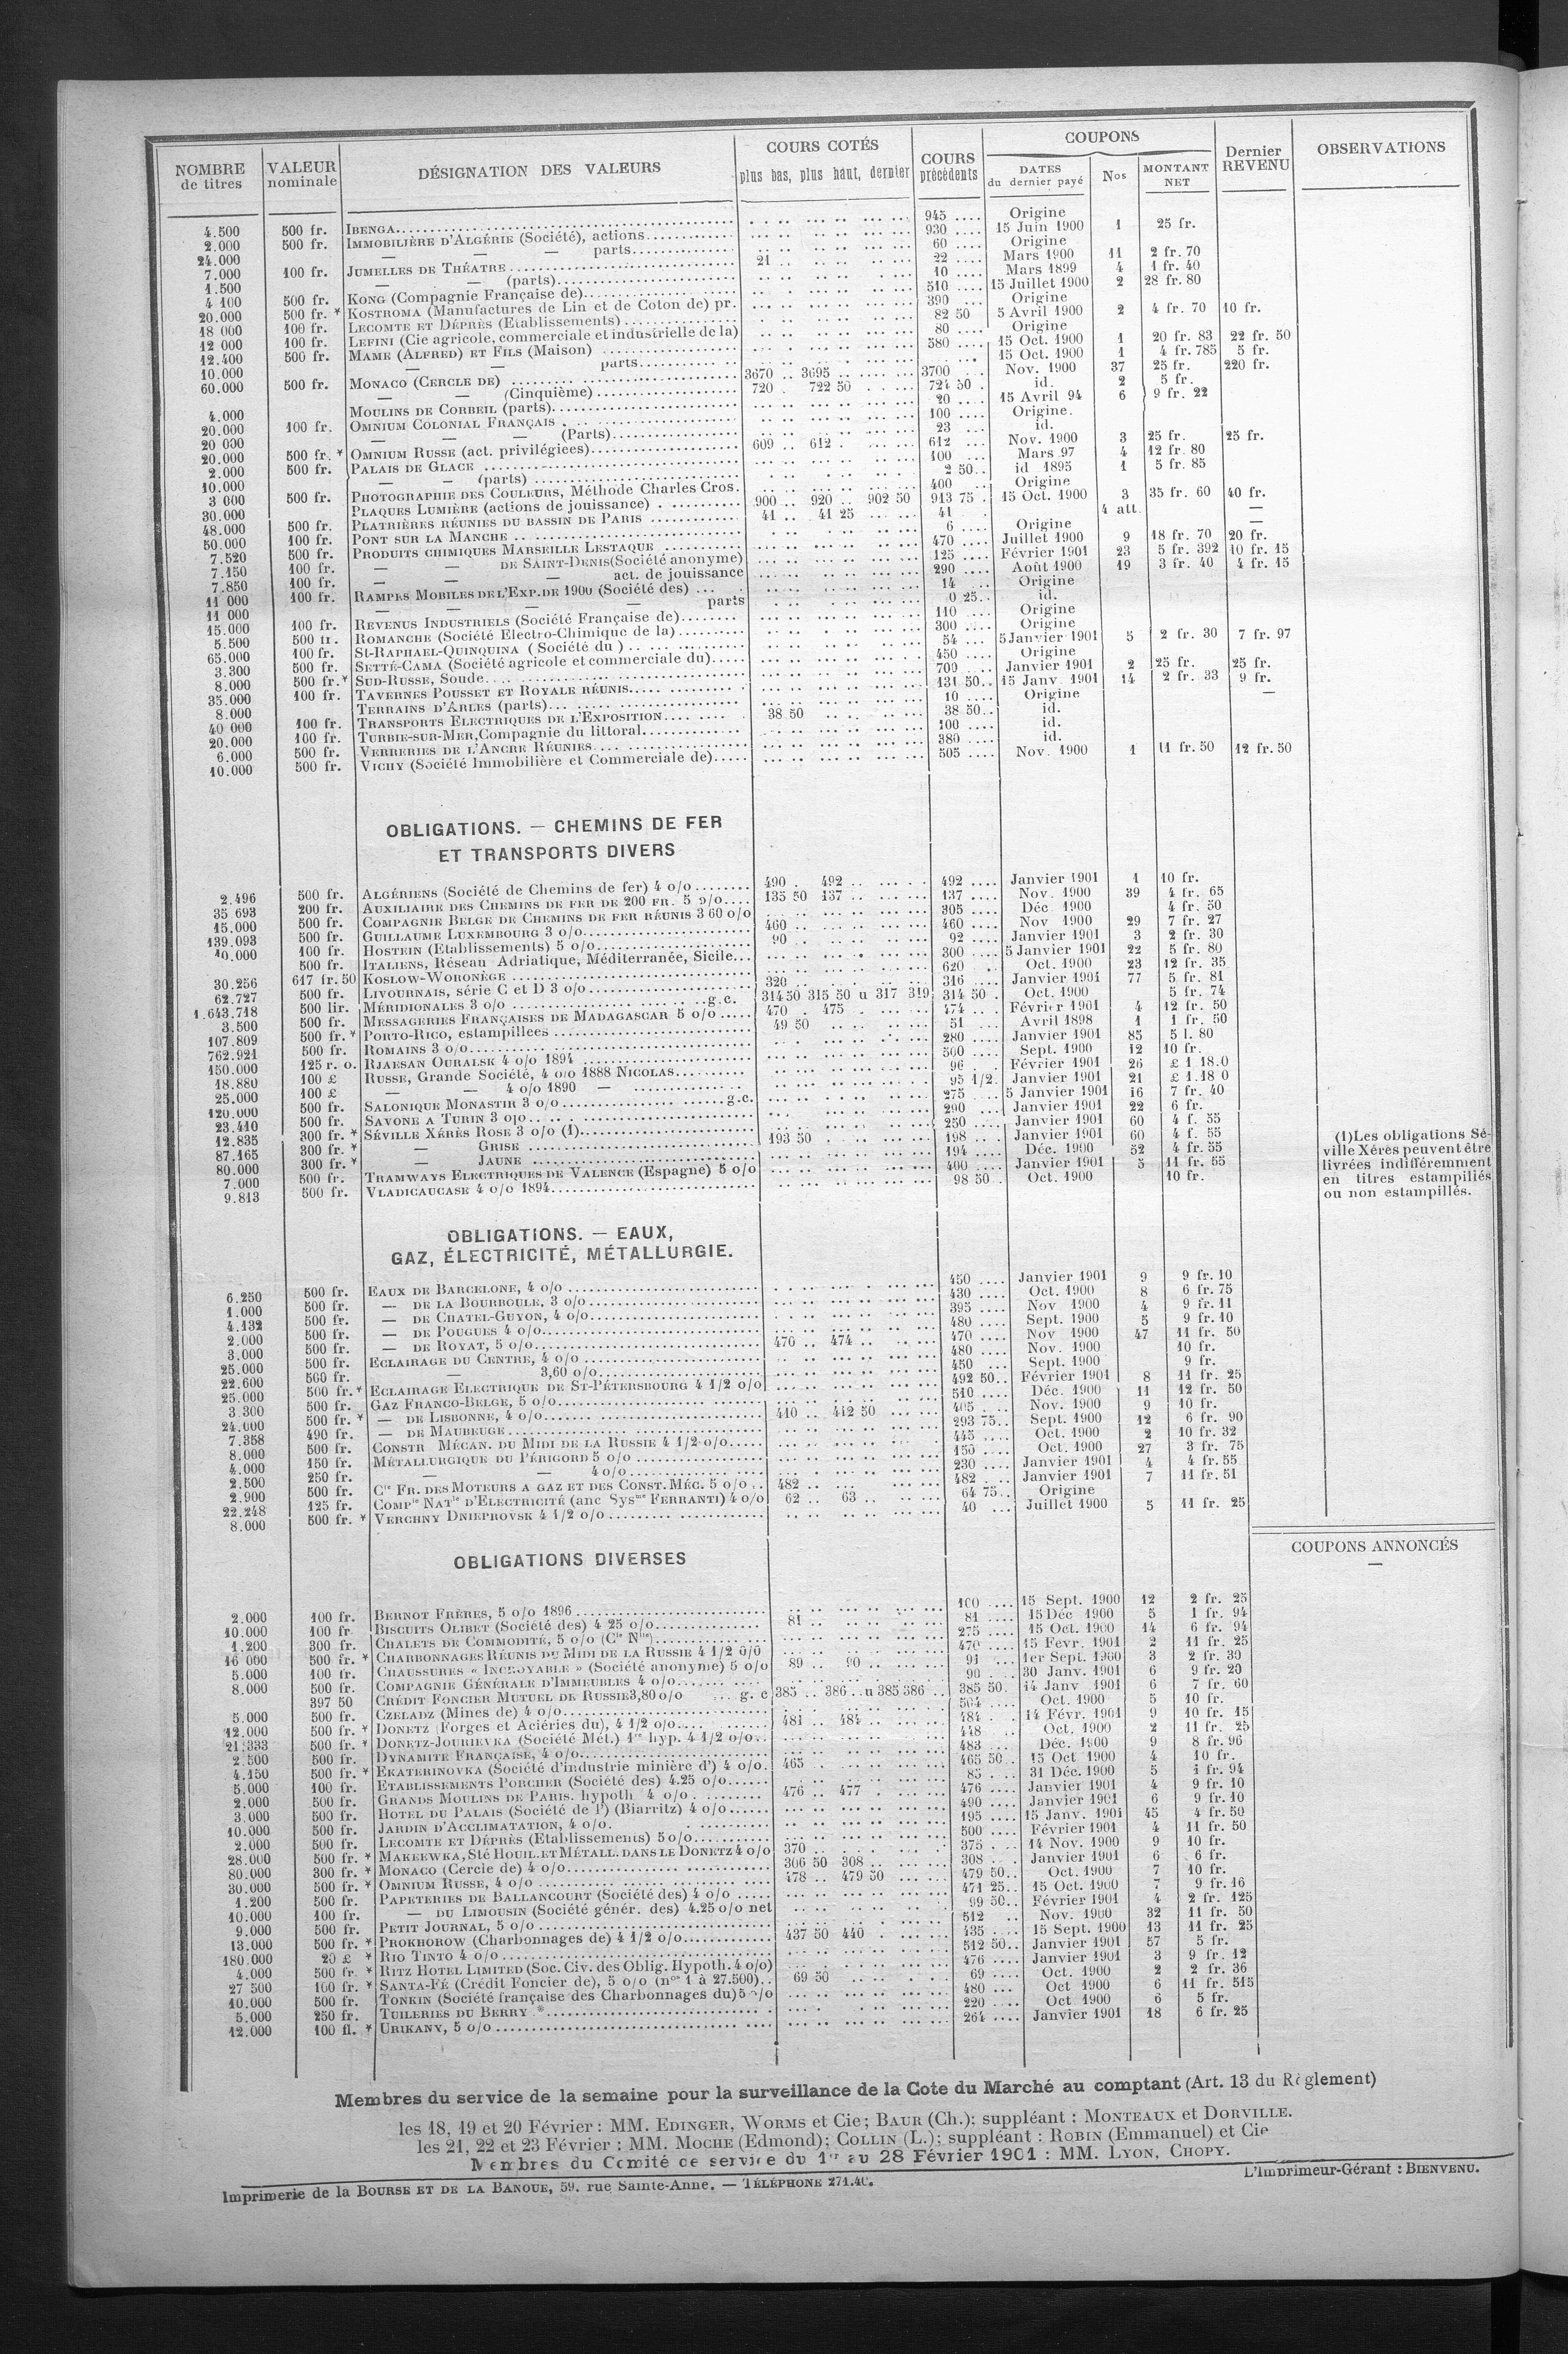 NOMBRE de titres | VALEUR nominale | DÉSIGNATION DES VALEURS | COURS COTÉS plus bas, plus haut, dernier | COURS précédents | COUPONS DATES du dernier payé | Nos | MONTANT NET | Dernier REVENU | OBSERVATIONS
4.500 500 fr. IBENGA 945 Origine
2.000 500 fr. IMMOBILIÈRE D'ALGÉRIE (Société), actions 930 15 Juin 1900 1 25 fr.
24.000 — — — parts 60 Origine
7.000 100 fr. JUMELLES DE THÉATRE 21 22 Mars 1900 11 2 fr. 70
1.500 — — (parts) 10 Mars 1899 4 1 fr. 40
4 100 500 fr. KONG (Compagnie Française de) 510 15 Juillet 1900 2 28 fr. 80
20.000 500 fr. * KOSTROMA (Manufactures de Lin et de Coton de) pr. 390 Origine
18 000 100 fr. LECOMTE ET DÉPRÈS (Etablissements) 82 50 5 Avril 1900 2 4 fr. 70 10 fr.
12 000 100 fr. LEFINI (Cie agricole, commerciale et industrielle de la) 80 Origine
12.400 500 fr. MAME (ALFRED) ET FILS (Maison) 580 15 Oct. 1900 1 20 fr. 83 22 fr. 50
10.000 — — parts 15 Oct. 1900 1 4 fr. 785 5 fr.
60.000 500 fr. MONACO (CERCLE DE) 3670 3695 3700 Nov. 1900 37 25 fr. 220 fr.
— — (Cinquième) 720 722 50 724 50 id. 2 5 fr.
4.000 MOULINS DE CORBEIL (parts) 20 15 Avril 94 6 9 fr. 22
20.000 100 fr. OMNIUM COLONIAL FRANÇAIS 100 Origine.
20 000 — — — (Parts) 23 id.
20.000 500 fr. * OMNIUM RUSSE (act. privilégiees) 609 612 612 Nov. 1900 3 25 fr. 25 fr.
2.000 500 fr. PALAIS DE GLACE 100 Mars 97 4 12 fr. 80
10.000 — — (parts) 2 50 id 1895 1 5 fr. 85
3 000 500 fr. PHOTOGRAPHIE DES COULEURS, Méthode Charles Cros. 400 Origine
30.000 PLAQUES LUMIÈRE (actions de jouissance) 900 920 902 50 913 75 15 Oct. 1900 3 35 fr. 60 40 fr.
48.000 500 fr. PLATRIÈRES RÉUNIES DU BASSIN DE PARIS 41 41 25 41 4 att. —
50.000 100 fr. PONT SUR LA MANCHE 6 Origine —
7.520 500 fr. PRODUITS CHIMIQUES MARSEILLE LESTAQUE 470 Juillet 1900 9 18 fr. 70 20 fr.
7.150 100 fr. — — DE SAINT-DENIS (Société anonyme) 125 Février 1901 23 5 fr. 392 10 fr. 15
7.850 100 fr. — — — act. de jouissance 290 Août 1900 19 3 fr. 40 4 fr. 15
11 000 100 fr. RAMPES MOBILES DE L'EXP. DE 1900 (Société des) 14 Origine
11 000 — — — — parts 0 25 id.
15.000 100 fr. REVENUS INDUSTRIELS (Société Française de) 110 Origine
5.500 500 fr. ROMANCHE (Société Electro-Chimique de la) 300 Origine
65.000 100 fr. St-RAPHAEL-QUINQUINA (Société du) 54 5 Janvier 1901 5 2 fr. 30 7 fr. 97
3.300 500 fr. SETTÉ-CAMA (Société agricole et commerciale du) 450 Origine
8.000 500 fr. * SUD-RUSSE, Soude 700 Janvier 1901 2 25 fr. 25 fr.
35.000 100 fr. TAVERNES POUSSET ET ROYALE RÉUNIS 131 50 15 Janv. 1901 14 2 fr. 33 9 fr.
8.000 TERRAINS D'ARLES (parts) 10 Origine —
40 000 100 fr. TRANSPORTS ELECTRIQUES DE L'EXPOSITION 38 50 38 50 id.
20.000 100 fr. TURBIE-SUR-MER, Compagnie du littoral 100 id.
6.000 500 fr. VERRERIES DE L'ANCRE RÉUNIES 380 id.
10.000 500 fr. VICHY (Société Immobilière et Commerciale de) 505 Nov. 1900 1 11 fr. 50 12 fr. 50
OBLIGATIONS. — CHEMINS DE FER
ET TRANSPORTS DIVERS
2.496 500 fr. ALGÉRIENS (Société de Chemins de fer) 4 o/o 490 492 492 Janvier 1901 1 10 fr.
35 693 200 fr. AUXILIAIRE DES CHEMINS DE FER DE 200 FR. 5 o/o 135 50 137 137 Nov. 1900 39 4 fr. 65
15.000 500 fr. COMPAGNIE BELGE DE CHEMINS DE FER RÉUNIS 3 60 o/o 305 Déc 1900 4 fr. 50
139.093 500 fr. GUILLAUME LUXEMBOURG 3 o/o 460 460 Nov 1900 29 7 fr. 27
40.000 100 fr. HOSTEIN (Etablissements) 5 o/o 90 92 Janvier 1901 3 2 fr. 30
500 fr. ITALIENS, Réseau Adriatique, Méditerranée, Sicile 300 5 Janvier 1901 22 5 fr. 80
30.256 617 fr. 50 KOSLOW-WORONÈGE 620 Oct. 1900 23 12 fr. 35
62.727 500 fr. LIVOURNAIS, série C et D 3 o/o 320 316 Janvier 1901 77 5 fr. 81
1.643.718 500 lir. MÉRIDIONALES 3 o/o g.c. 314 50 315 50 u 317 319 314 50 Oct. 1900 5 fr. 74
3.500 500 fr. MESSAGERIES FRANÇAISES DE MADAGASCAR 5 o/o 470 475 474 Février 1901 4 12 fr. 50
107.809 500 fr. * PORTO-RICO, estampillees 49 50 51 Avril 1898 1 1 fr. 50
762.921 500 fr. ROMAINS 3 o/o 280 Janvier 1901 85 5 l. 80
150.000 125 r. o. RJAESAN OURALSK 4 o/o 1894 500 Sept. 1900 12 10 fr.
18.880 100 £ RUSSE, Grande Société, 4 o/o 1888 NICOLAS 96 Février 1901 26 £ 1 18.0
25.000 100 £ — — 4 o/o 1890 — 95 1/2 Janvier 1901 21 £ 1.18 0
120.000 500 fr. SALONIQUE MONASTIR 3 o/o g.c. 275 5 Janvier 1901 16 7 fr. 40
23.410 500 fr. SAVONE A TURIN 3 o/o 290 Janvier 1901 22 6 fr.
12.835 300 fr. * SÉVILLE XÉRÈS ROSE 3 o/o (1) 250 Janvier 1901 60 4 f. 55
87.165 300 fr. * — GRISE 193 50 198 Janvier 1901 60 4 f. 55
80.000 300 fr. * — JAUNE 194 Déc. 1900 52 4 fr. 55
7.000 500 fr. TRAMWAYS ELECTRIQUES DE VALENCE (Espagne) 5 o/o 400 Janvier 1901 5 11 fr. 55
9.813 500 fr. VLADICAUCASE 4 o/o 1894 98 50 Oct. 1900 10 fr.
(1) Les obligations Sé-
ville Xérès peuvent être
livrées indifféremment
en titres estampillés
ou non estampillés.
OBLIGATIONS. — EAUX,
GAZ, ÉLECTRICITÉ, MÉTALLURGIE.
6.250 500 fr. EAUX DE BARCELONE, 4 o/o 450 Janvier 1901 9 9 fr. 10
1.000 500 fr. — DE LA BOURBOULE, 3 o/o 430 Oct. 1900 8 6 fr. 75
4.132 500 fr. — DE CHATEL-GUYON, 4 o/o 395 Nov 1900 4 9 fr. 11
2.000 500 fr. — DE POUGUES 4 o/o 480 Sept. 1900 5 9 fr. 10
3.000 500 fr. — DE ROYAT, 5 o/o 470 474 470 Nov 1900 47 11 fr. 50
25.000 500 fr. ECLAIRAGE DU CENTRE, 4 o/o 480 Nov. 1900 10 fr.
22.600 500 fr. — 3,60 o/o 450 Sept. 1900 9 fr.
25.000 500 fr. * ECLAIRAGE ELECTRIQUE DE ST-PÉTERSBOURG 4 1/2 o/o 492 50 Février 1901 8 11 fr. 25
3.300 500 fr. GAZ FRANCO-BELGE, 5 o/o 510 Déc. 1900 11 12 fr. 50
24.000 500 fr. * — DE LISBONNE, 4 o/o 410 412 50 405 Nov. 1900 9 10 fr.
7.358 490 fr. — DE MAUBEUGE 293 75 Sept. 1900 12 6 fr. 90
8.000 500 fr. CONSTR MÉCAN. DU MIDI DE LA RUSSIE 4 1/2 o/o 445 Oct. 1900 2 10 fr. 32
4.000 150 fr. MÉTALLURGIQUE DU PÉRIGORD 5 o/o 150 Oct. 1900 27 3 fr. 75
2.500 250 fr. — — 4 o/o 230 Janvier 1901 4 4 fr. 55
2.900 500 fr. Cie FR. DES MOTEURS A GAZ ET DES CONST. MÉC. 5 o/o 482 482 Janvier 1901 7 11 fr. 51
22.248 125 fr. COMPie NATle D'ELECTRICITÉ (anc Sysme FERRANTI) 4 o/o 62 63 64 75 Origine
8.000 500 fr. * VERCHNY DNIEPROVSK 4 1/2 o/o 40 Juillet 1900 5 11 fr. 25
COUPONS ANNONCÉS
—
OBLIGATIONS DIVERSES
2.000 100 fr. BERNOT FRÈRES, 5 o/o 1896 100 15 Sept. 1900 12 2 fr. 25
10.000 100 fr. BISCUITS OLIBET (Société des) 4 25 o/o 81 81 15 Déc 1900 5 1 fr. 94
1.200 300 fr. CHALETS DE COMMODITÉ, 5 o/o (Cie Nlle) 275 15 Oct. 1900 14 6 fr. 94
16 000 500 fr. * CHARBONNAGES RÉUNIS DU MIDI DE LA RUSSIE 4 1/2 o/o 470 15 Févr. 1901 2 11 fr. 25
5.000 100 fr. CHAUSSURES « INCROYABLE » (Société anonyme) 5 o/o 89 90 91 1er Sept. 1900 3 2 fr. 30
8.000 500 fr. COMPAGNIE GÉNÉRALE D'IMMEUBLES 4 o/o 90 30 Janv. 1901 6 9 fr. 20
397 50 CRÉDIT FONCIER MUTUEL DE RUSSIE 3,80 o/o g. c 385 386 u 385 386 385 50 14 Janv 1901 6 7 fr. 60
5.000 500 fr. CZELADZ (Mines de) 4 o/o 504 Oct. 1900 5 10 fr.
12.000 500 fr. * DONETZ (Forges et Aciéries du), 4 1/2 o/o 481 484 484 14 Févr. 1901 9 10 fr. 15
21.333 500 fr. * DONETZ-JOURIEVKA (Société Mét.) 1re hyp. 4 1/2 o/o 448 Oct. 1900 2 11 fr. 25
2.500 500 fr. DYNAMITE FRANÇAISE, 4 o/o 483 Déc. 1900 9 8 fr. 96
4.150 500 fr. * EKATERINOVKA (Société d'industrie minière d') 4 o/o 465 465 50 15 Oct 1900 4 10 fr.
5.000 100 fr. ETABLISSEMENTS PORCHER (Société des) 4.25 o/o 85 31 Déc. 1900 5 1 fr. 94
2.000 500 fr. GRANDS MOULINS DE PARIS. hypoth 4 o/o 476 477 476 Janvier 1901 4 9 fr. 10
3.000 500 fr. HOTEL DU PALAIS (Société de l') (Biarritz) 4 o/o 490 Janvier 1901 6 9 fr. 10
10.000 500 fr. JARDIN D'ACCLIMATATION, 4 o/o. 195 15 Janv. 1901 45 4 fr. 50
2.000 500 fr. LECOMTE ET DÉPRÈS (Etablissements) 5 o/o 500 Février 1901 4 11 fr. 50
28.000 500 fr. * MAKEEWKA, Sté HOUIL. ET MÉTALL. DANS LE DONETZ 4 o/o 370 375 14 Nov. 1900 9 10 fr.
80.000 300 fr. * MONACO (Cercle de) 4 o/o 306 50 308 308 Janvier 1901 6 6 fr.
30.000 500 fr. * OMNIUM RUSSE, 4 o/o 478 479 50 479 50 Oct. 1900 7 10 fr.
1.200 500 fr. PAPETERIES DE BALLANCOURT (Société des) 4 o/o 471 25 15 Oct. 1900 7 9 fr. 16
10.000 100 fr. — DU LIMOUSIN (Société génér. des) 4.25 o/o net 99 50 Février 1901 4 2 fr. 125
9.000 500 fr. PETIT JOURNAL, 5 o/o 512 Nov. 1900 32 11 fr. 50
13.000 500 fr. * PROKHOROW (Charbonnages de) 4 1/2 o/o 437 50 440 435 15 Sept. 1900 13 11 fr. 25
180.000 20 £ * RIO TINTO 4 o/o 512 50 Janvier 1901 57 5 fr.
4.000 500 fr. * RITZ HOTEL LIMITED (Soc. Civ. des Oblig. Hypoth. 4 o/o) 476 Janvier 1901 3 9 fr. 12
27 500 100 fr. * SANTA-FÉ (Crédit Foncier de), 5 o/o (nos 1 à 27.500) 69 50 69 Oct. 1900 2 2 fr. 36
10.000 500 fr. TONKIN (Société française des Charbonnages du) 5 o/o 480 Oct 1900 6 11 fr. 515
5.000 250 fr. TUILERIES DU BERRY * 220 Oct 1900 6 5 fr.
12.000 100 fl. * URIKANY, 5 o/o 264 Janvier 1901 18 6 fr. 25
Membres du service de la semaine pour la surveillance de la Cote du Marché au comptant (Art. 13 du Règlement)
les 18, 19 et 20 Février : MM. EDINGER, WORMS et Cie; BAUR (Ch.); suppléant : MONTEAUX et DORVILLE.
les 21, 22 et 23 Février : MM. MOCHE (Edmond); COLLIN (L.); suppléant : ROBIN (Emmanuel) et Cie
Membres du Comité de service du 1er au 28 Février 1901 : MM. LYON, CHOPY.
Imprimerie de la BOURSE ET DE LA BANQUE, 59. rue Sainte-Anne. — TÉLÉPHONE 271.40.
L'Imprimeur-Gérant : BIENVENU.